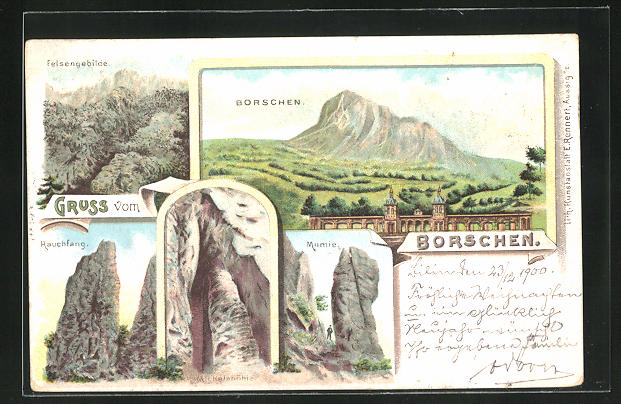 Felsengebilde.
BORSCHEN.
GRUSS vom
BORSCHEN.
Rauchfang.
Mumie.
Lith. Kunstanstalt E. Rennert, Aussig a/E.
Bilin den 23/12 1900.
Fröhliche Weihnachten
u. ein glücklich
Neujahr wünscht
Ihr ergebene Familie